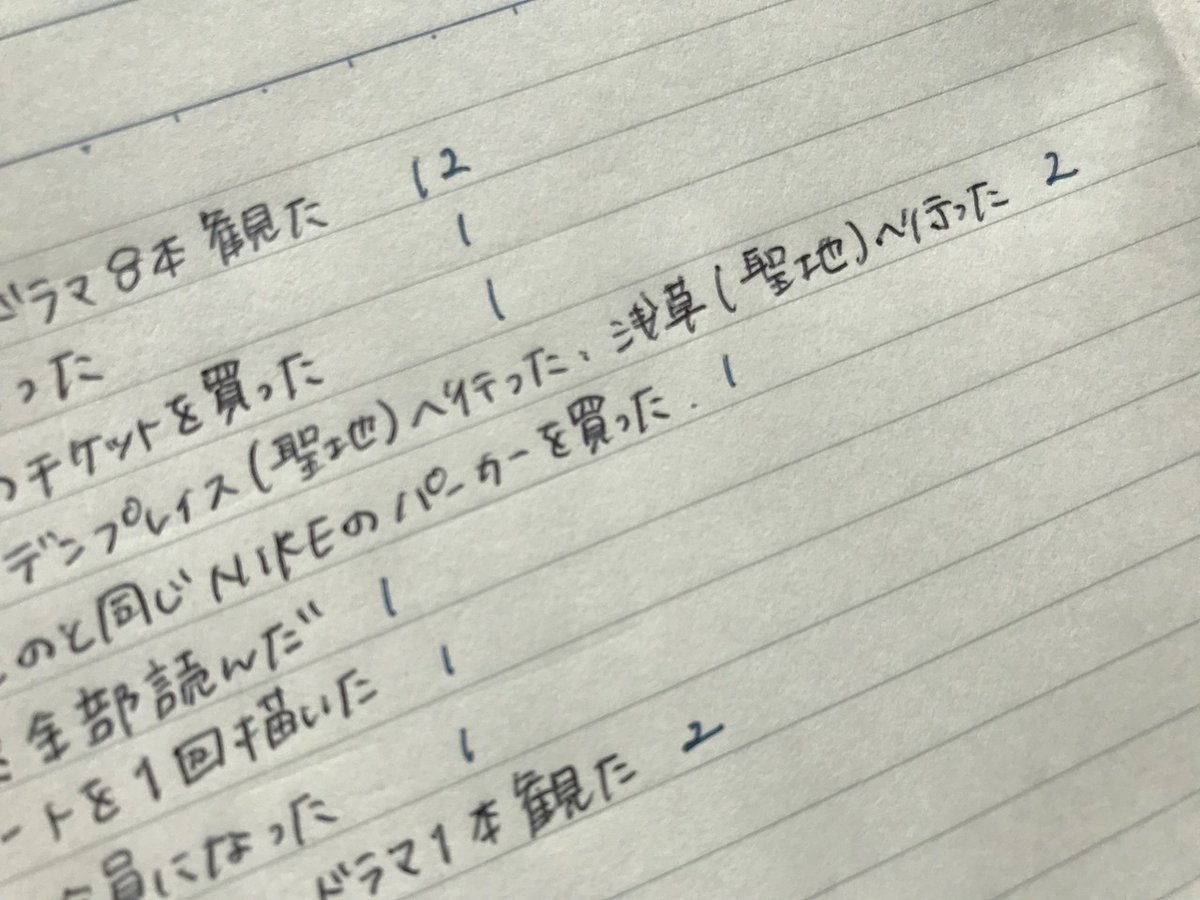 ドラマ8本観た 12
った 1
チケットを買った 1
デンプレイス(聖地)へ行った、浅草(聖地)へ行った 2
のと同じNIKEのパーカーを買った. 1
全部読んだ 1
ートを1回描いた 1
会員になった 1
ドラマ1本観た 2